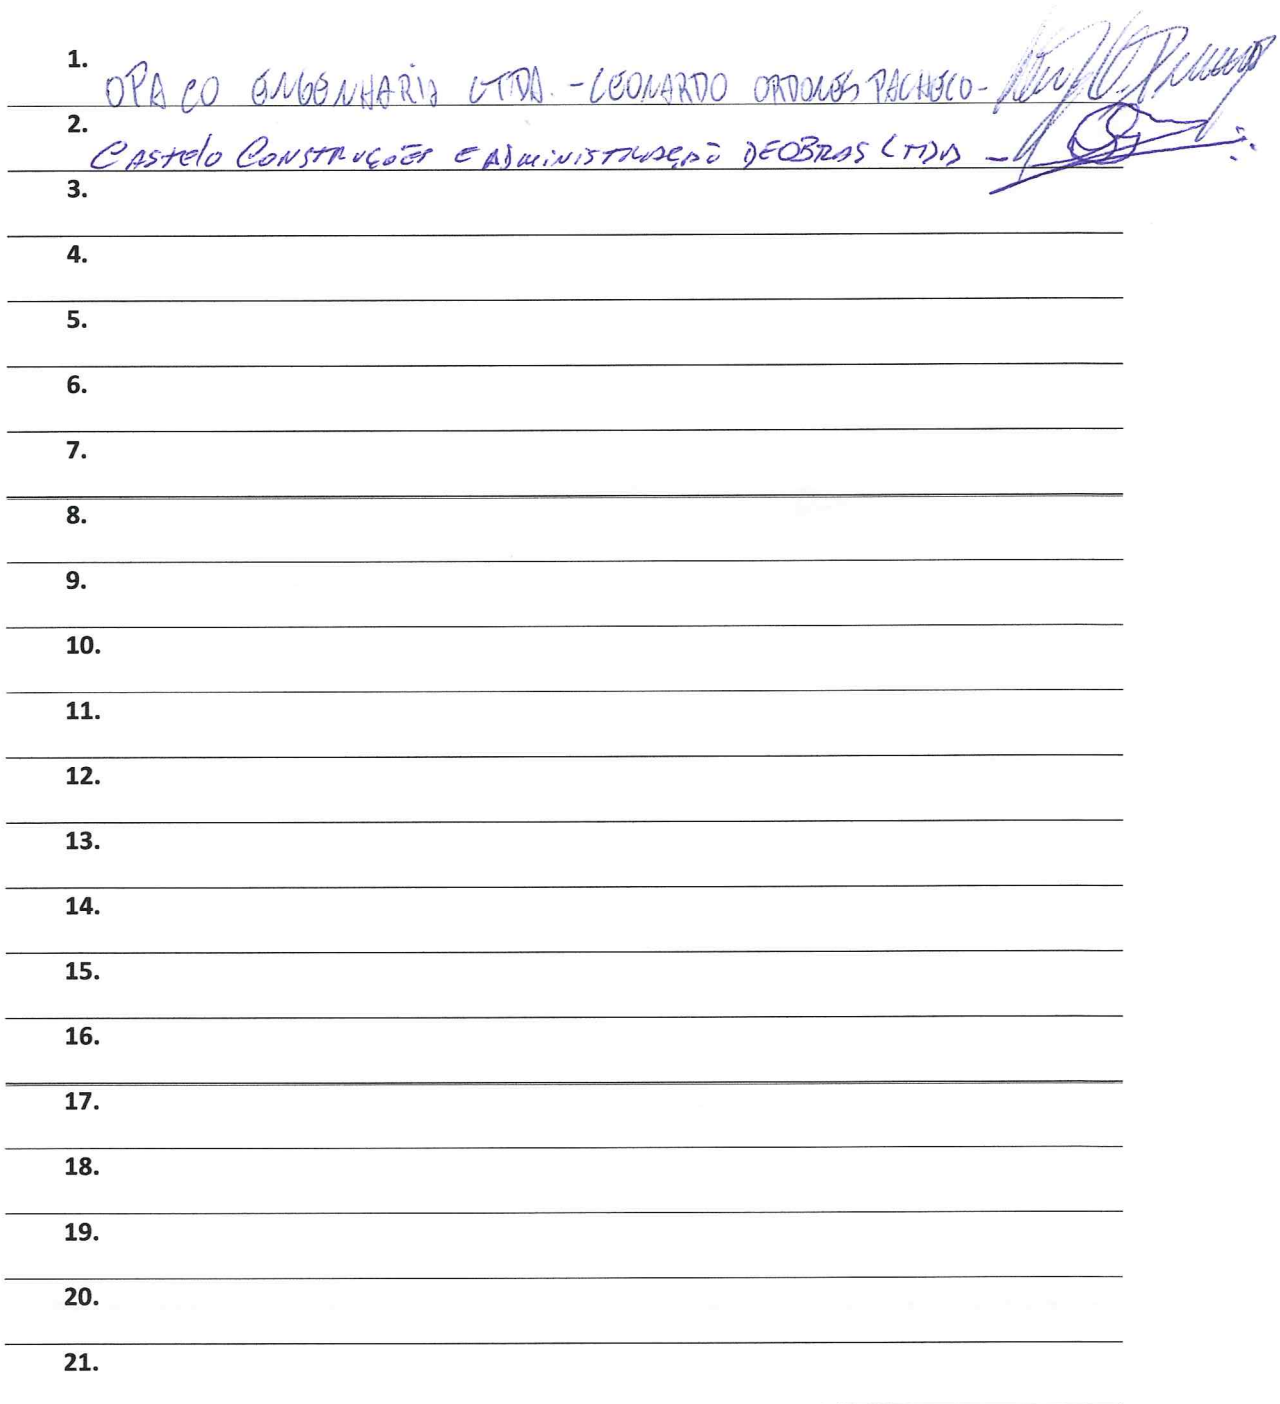 1. OPACO ENGENHARIA LTDA. - LEONARDO ORDONES PACHECO -
2. Castelo Construções e Administração DE OBRAS LTDA -
3.
4.
5.
6.
7.
8.
9.
10.
11.
12.
13.
14.
15.
16.
17.
18.
19.
20.
21.